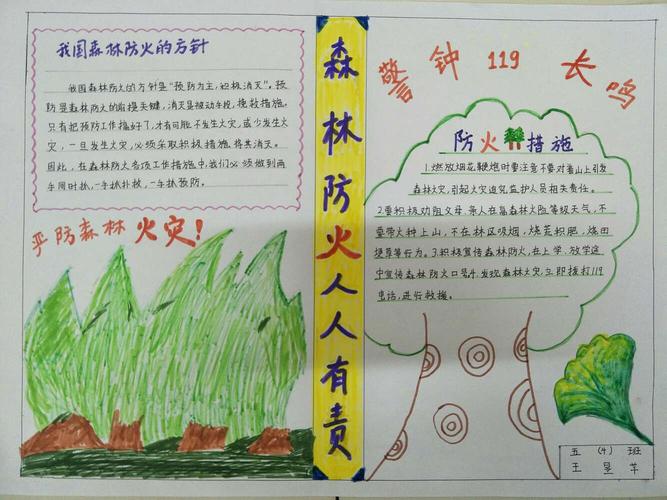 我国森林防火的方针
我国森林防火的方针是"预防为主,积极消灭"。预
防是森林防火的前提关键,消灭是被动手段,挽救措施。
只有把预防工作搞好了,才有可能不发生火灾,或少发生火
灾,一旦发生火灾,必须采取积极措施将其消灭。
因此,在森林防火各项工作措施中,我们必须做到两
手同时抓,一手抓扑救,一手抓预防。
严防森林火灾!
森林防火人人有责
警钟119长鸣
防火措施
1.燃放烟花鞭炮时要注意不要对着山上引发
森林火灾,引起火灾追究监护人员相关责任。
2.要积极劝阻父母、亲人在高森林火险等级天气,不
要带火种上山,不在林区吸烟,烧荒积肥,烧田
埂草等行为。3.积极宣传森林防火,在上学、放学途
中宣传森林防火口号4.发现森林火灾,立即拨打119
电话,进行救援。
五(4)班
王昱芊